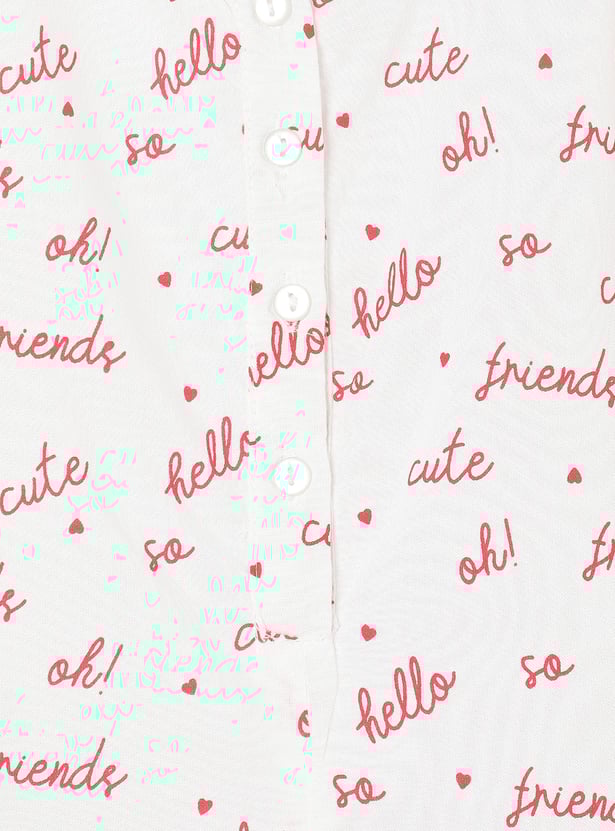 cute hello cute
so oh! fri
s
oh! cu so
hello
riends ello so friends
cute hello cute
so c oh! fr
s
oh! c so
hello
riends so friends